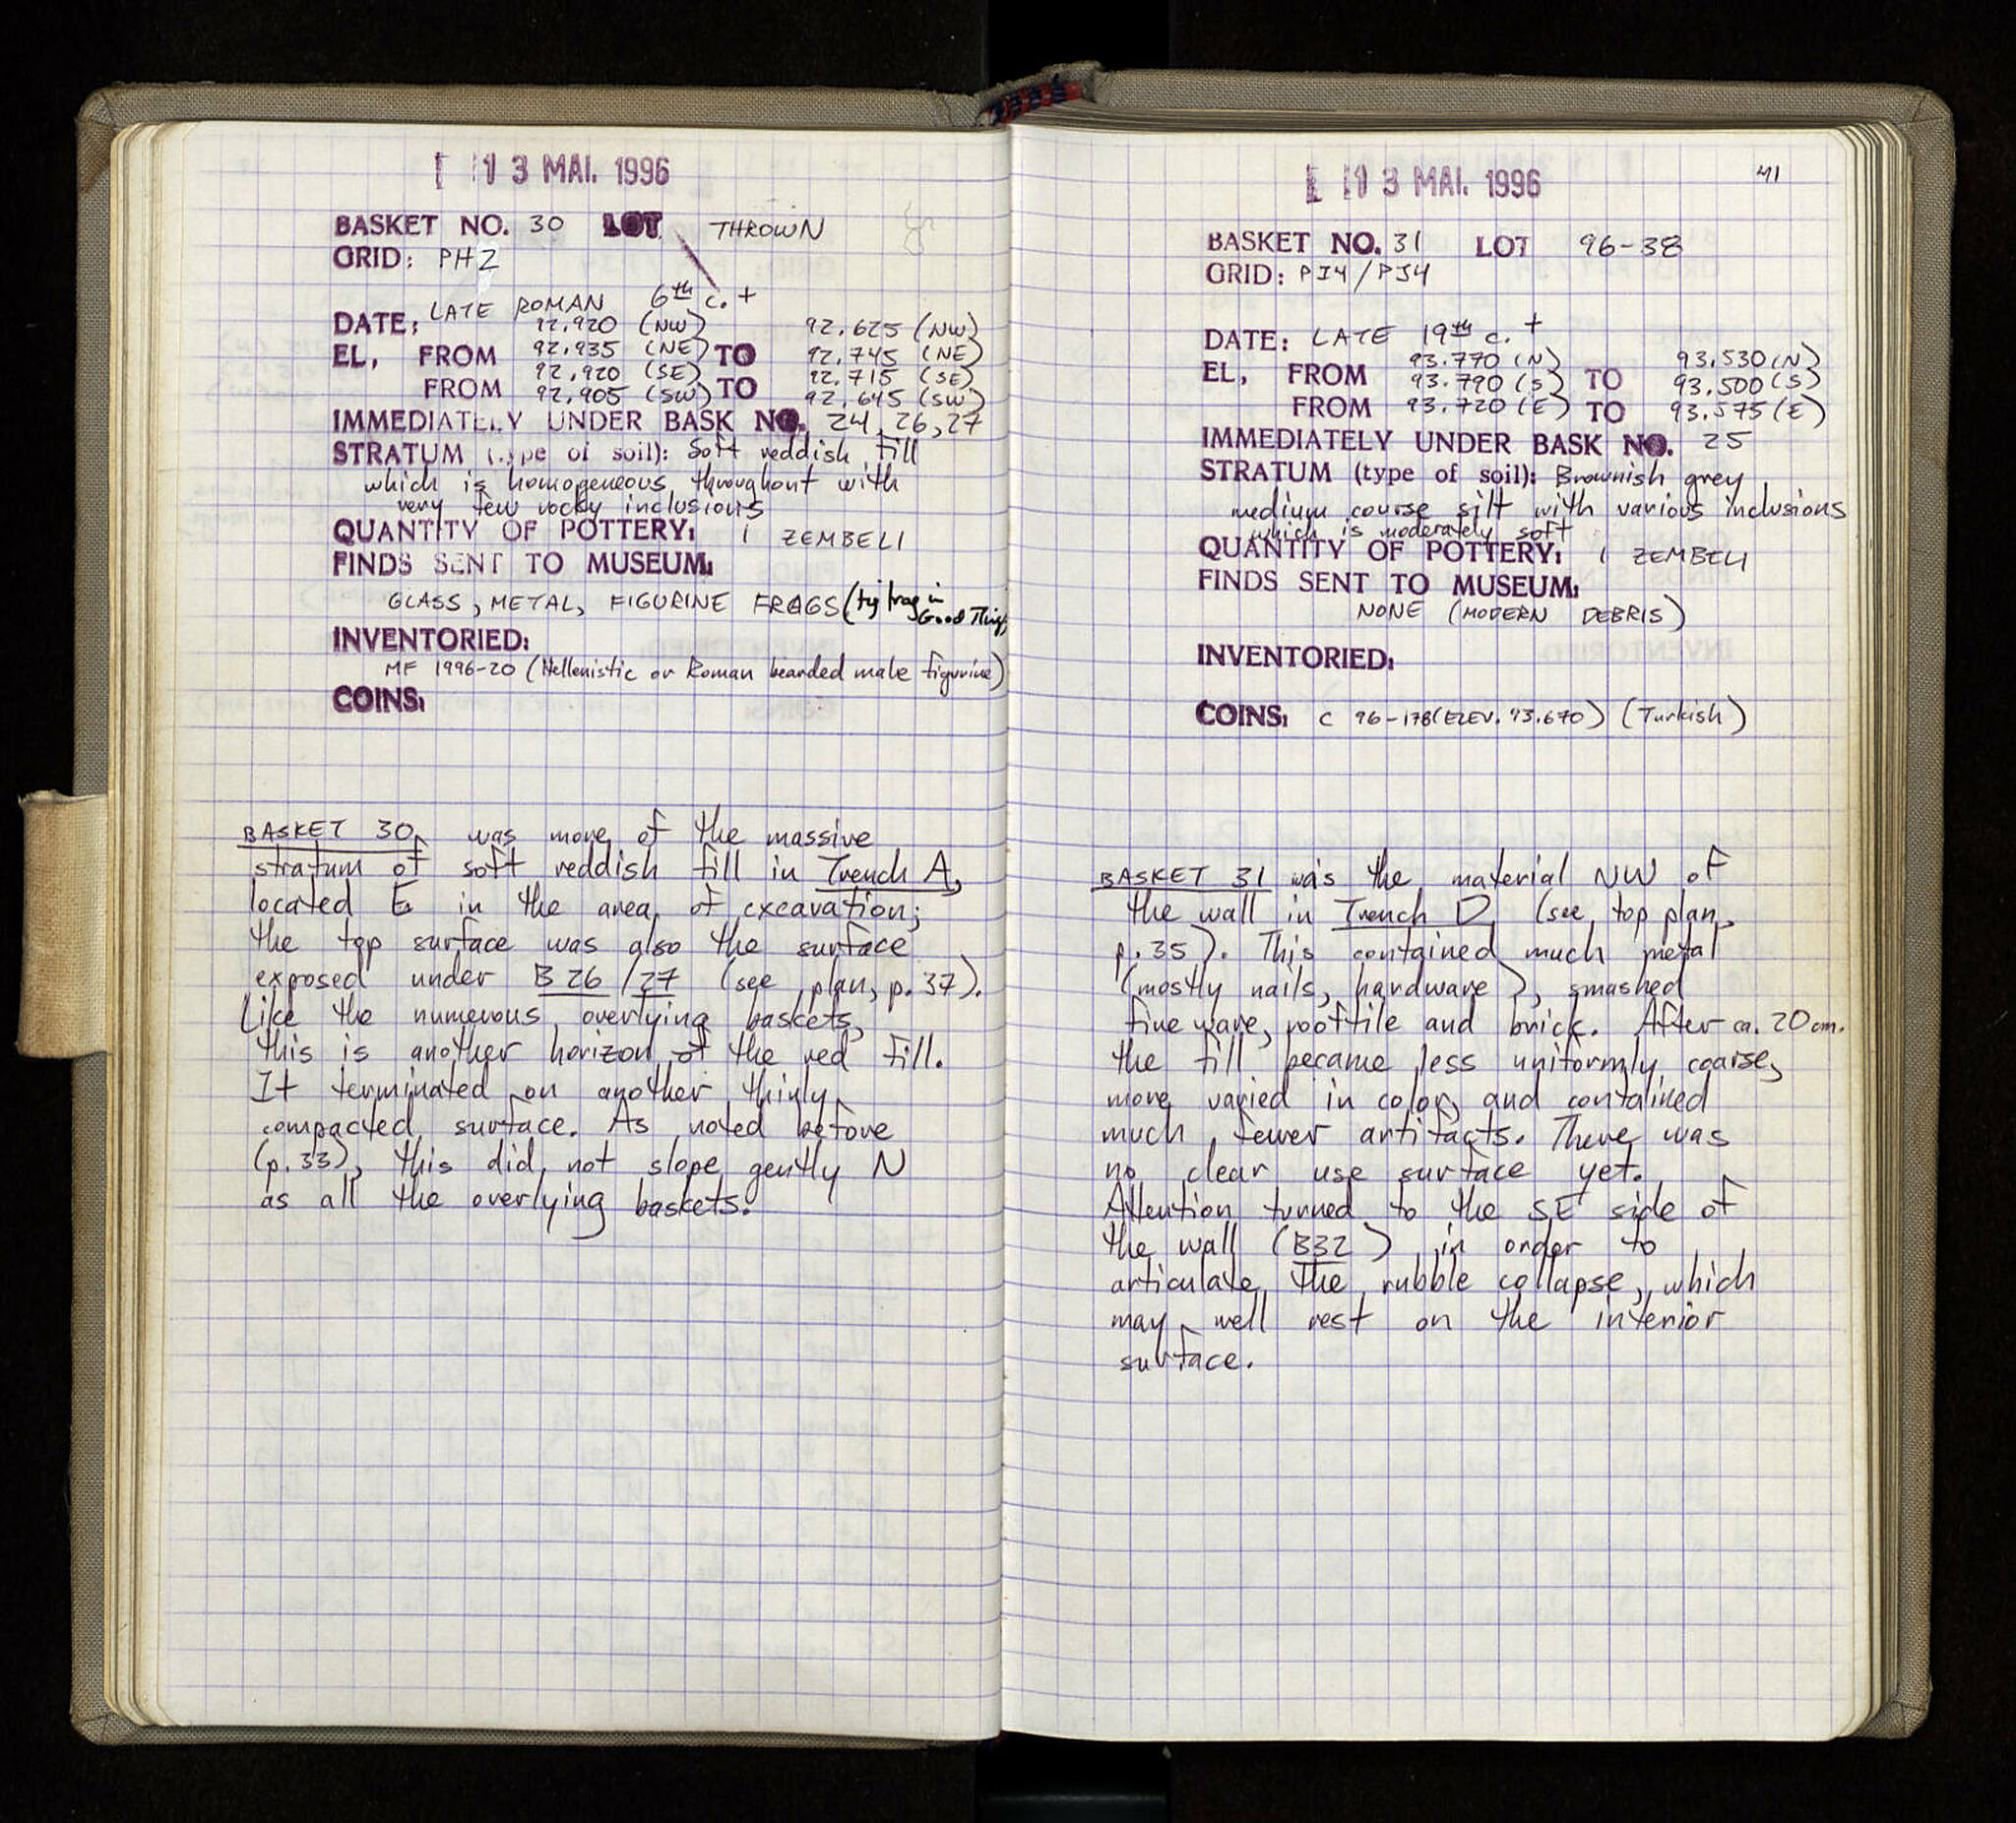 13 MAI. 1996
BASKET NO. 30 LOT THROWN
GRID: PHZ
DATE: LATE ROMAN 6th c. +
92.920 (NW) 92.625 (NW)
EL, FROM 92.935 (NE) TO 92.745 (NE)
92.920 (SE) 92.715 (SE)
FROM 92.905 (SW) TO 92.645 (SW)
IMMEDIATELY UNDER BASK NO. 24, 26, 27
STRATUM (type of soil): Soft reddish fill
which is homogeneous throughout with
very few rocky inclusions
QUANTITY OF POTTERY: 1 ZEMBELI
FINDS SENT TO MUSEUM:
GLASS, METAL, FIGURINE FRAGS (fig frag in
Good Things
INVENTORIED:
MF 1996-20 (Hellenistic or Roman bearded male figurine)
COINS:
BASKET 30 was more of the massive
stratum of soft reddish fill in Trench A,
located E in the area of excavation;
the top surface was also the surface
exposed under B 26/27 (see plan, p. 37).
Like the numerous overlying baskets,
this is another horizon of the red fill.
It terminated on another thinly
compacted surface. As noted before
(p. 33), this did not slope gently N
as all the overlying baskets.
13 MAI. 1996
41
BASKET NO. 31 LOT 96-38
GRID: PI4/PJ4
DATE: LATE 19th c. +
93.770 (N) 93.530 (N)
EL, FROM 93.790 (S) TO 93.500 (S)
FROM 93.720 (E) TO 93.575 (E)
IMMEDIATELY UNDER BASK NO. 25
STRATUM (type of soil): Brownish grey
medium course silt with various inclusions
which is moderately soft
QUANTITY OF POTTERY: 1 ZEMBELI
FINDS SENT TO MUSEUM:
NONE (MODERN DEBRIS)
INVENTORIED:
COINS: C 96-178 (ELEV. 93.670) (Turkish)
BASKET 31 was the material NW of
the wall in Trench D (see top plan,
p. 35). This contained much metal
(mostly nails, hardware), smashed
fine ware, rooftile and brick. After ca. 20 cm.
the fill became less uniformly coarse,
more varied in color, and contained
much fewer artifacts. There was
no clear use surface yet.
Attention turned to the SE side of
the wall (B32) in order to
articulate the rubble collapse, which
may well rest on the interior
surface.